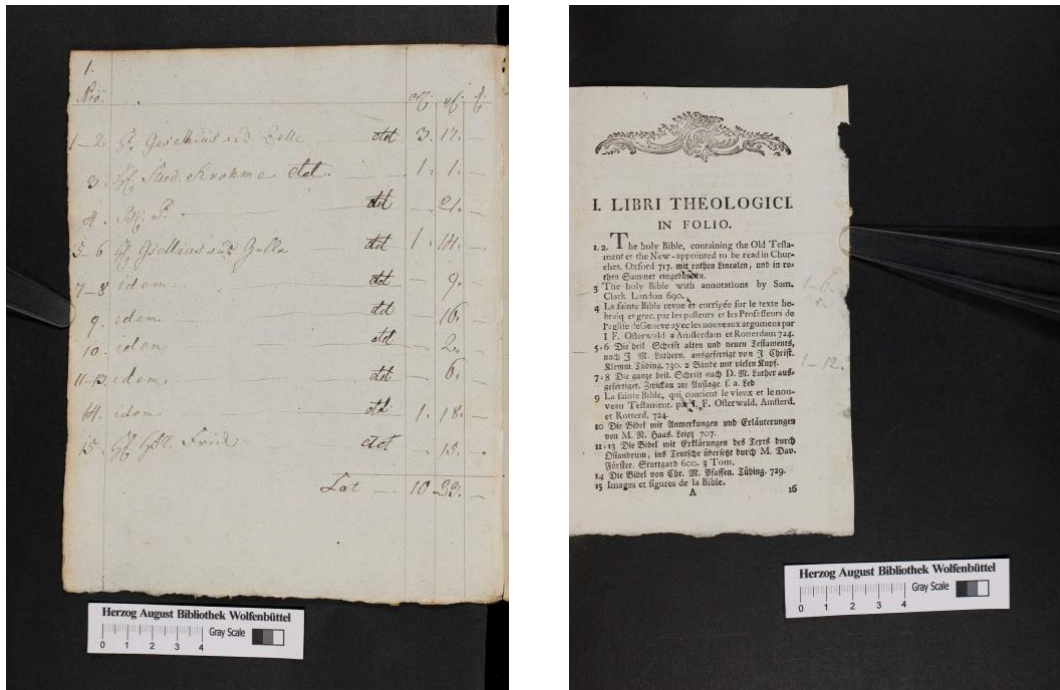 1.
Nrō.
1–2 aus Zelle ddt 3. 17. –
3. Stud. Krohme ddt. 1. 1. –
4. P. ddt – 21. –
5–6 aus Zelle ddt 1. 14. –
7–8 idem ddt – 9. –
9. idem ddt – 16. –
10. idem ddt – 2. –
11–13 idem ddt – 6. –
14. idem ddt 1. 18. –
15. Frick ddt . 15. –
Lat – 10 23. –
Herzog August Bibliothek Wolfenbüttel
Gray Scale
0 1 2 3 4
I. LIBRI THEOLOGICI.
IN FOLIO.
1. 2. The holy Bible, containing the Old Testa-
ment et the New-appointed to be read in Chur-
ches. Oxford 717. mit rothen Linealen, und in ro-
then Sammet eingebunden.
3 The holy Bible with annotations by Sam.
Clark London 690.
4 La sainte Bible revue et corrigée sur le texte he-
braiq et grec. par les pasteurs et les Professeurs de
l'eglise de Geneve avec les nouveaux argumens par
I F. Osterwald a Amsterdam et Rotterdam 724.
5-6 Die heil Schrift alten und neuen Testaments,
nach J M. Luthern, ausgefertigt von J Christ.
Klemm. Tübing. 730. 2 Bände mit vielen Kupf.
7-8 Die ganze heil. Schrift nach D. M. Luther aus-
gefertiget. Zwickau 2te Auflage. s. a. Led
9 La sainte Bible, qui contient le vieux et le nou-
veau Testament. par I. F. Osterwald. Amsterd.
et Rotterd. 724.
10 Die Bibel mit Anmerkungen und Erläuterungen
von M. N. Haas. Leipz 707.
11-13 Die Bibel mit Erklärungen des Texts durch
Osiandrum, ins Teutsche übersetzt durch M. Dav.
Förster. Stuttgard 600. 3 Tom.
14 Die Bibel von Chr. M. Pfaffen. Tübing. 729.
15 Images et figures de la Bible.
A 16
1–12.
Herzog August Bibliothek Wolfenbüttel
Gray Scale
0 1 2 3 4